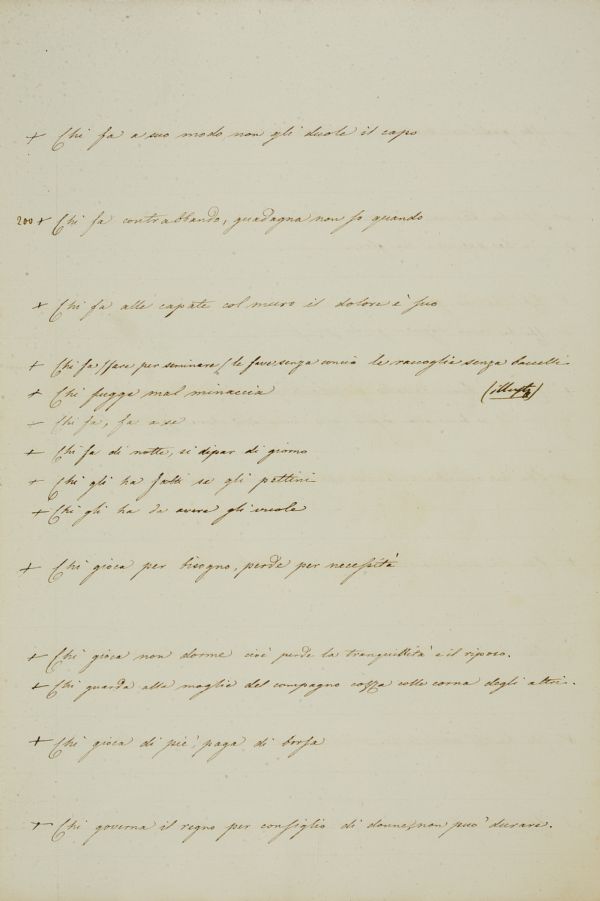 + Chi fa a suo modo non gli duole il capo
200 + Chi fa contrabbando, guadagna non so quando
+ Chi fa alle capate col muro il dolore è suo
+ Chi fa / fare per seminare / le fave senza concio le raccoglie senza baccelli
+ Chi fugge mal minaccia
– Chi fa, fa a se
+ Chi fa di notte, si dipar di giorno
+ Chi gli ha fatti se gli pettini
+ Chi gli ha da avere gli vuole
+ Chi gioca per bisogno, perde per necessità
+ Chi gioca non dorme cioè perde la tranquillità e il riposo.
+ Chi guarda alla moglie del compagno cozza colle corna degli altri.
+ Chi gioca di piè, paga di borsa
+ Chi governa il regno per consiglio di donne, non può durare.